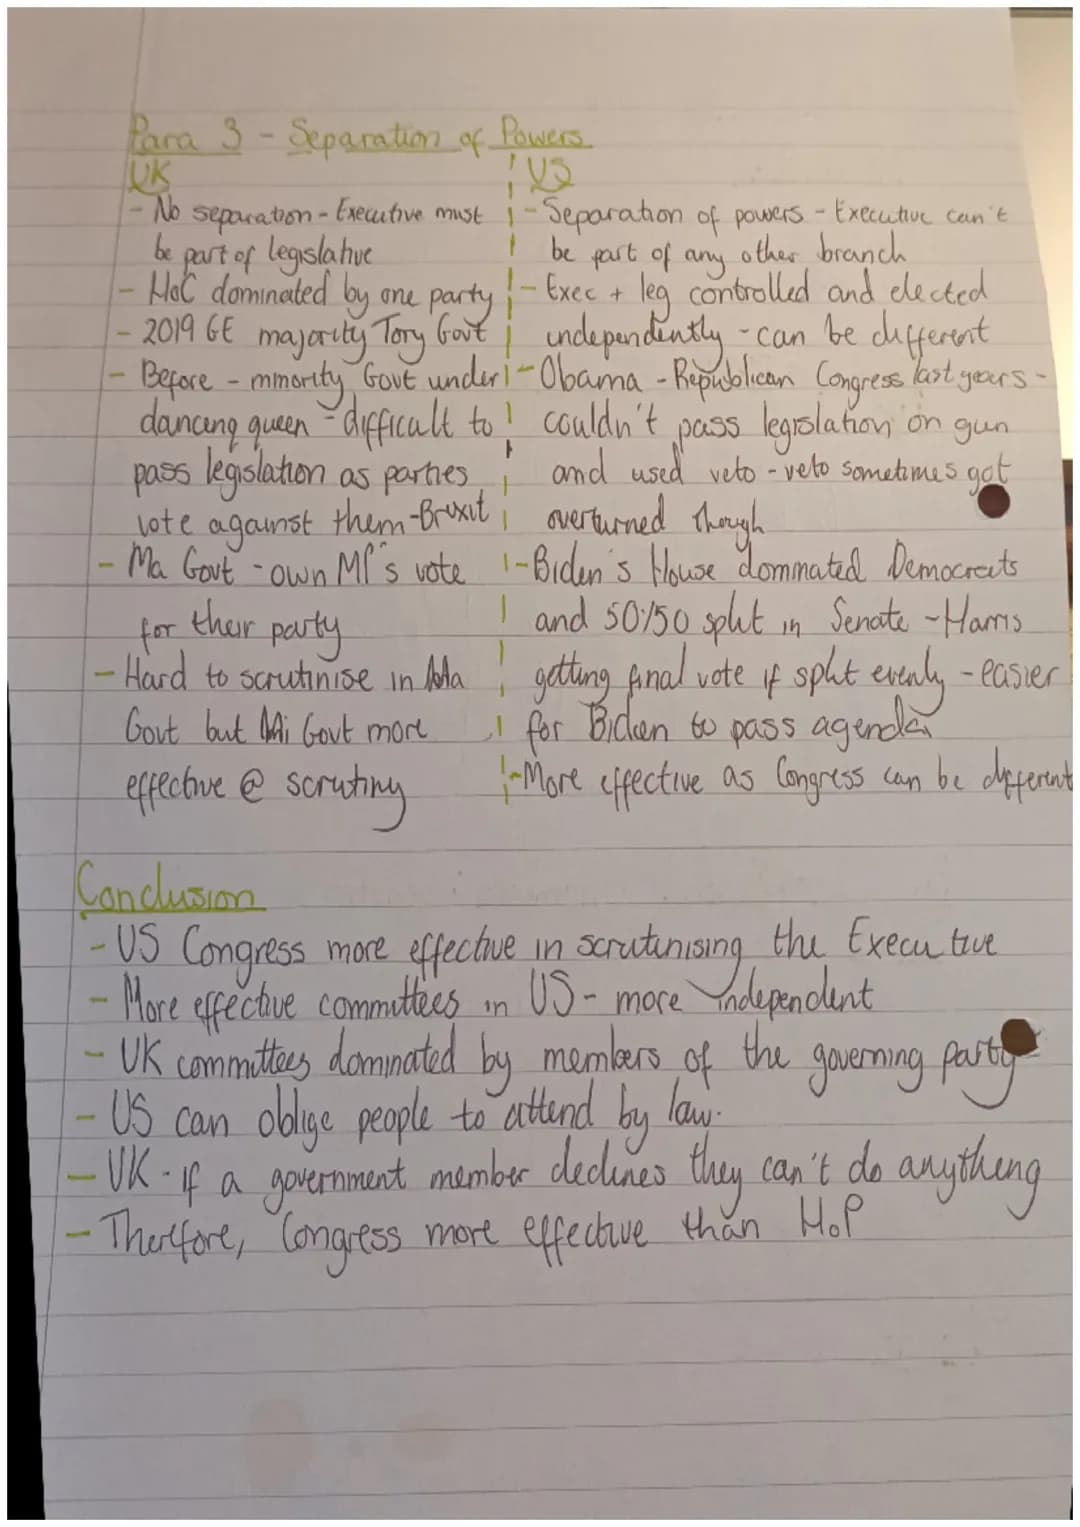 Para 3 - Separation of Powers
UK
- No separation - Executive must
be part of legislative
- HoC dominated by one party
- 2019 GE majority Tory Govt
- Before - minority Govt under
dancing queen - difficult to
pass legislation as parties
vote against them - Brexit
- Ma Govt - own MP's vote
for their party
- Hard to scrutinise in Ma
Govt but Mi Govt more
effective @ scrutiny
US
- Separation of powers - Executive can't
be part of any other branch
- Exec + leg controlled and elected
independently - can be different
- Obama - Republican Congress last years -
couldn't pass legislation on gun
and used veto - veto sometimes got
overturned though
- Biden's House dominated Democrats
and 50/50 split in Senate - Harris
getting final vote if split evenly - easier
for Biden to pass agenda
- More effective as Congress can be different
Conclusion
- US Congress more effective in scrutinising the Executive
- More effective committees in US - more independent
- UK committees dominated by members of the governing party
- US can oblige people to attend by law.
- UK - if a government member declines they can't do anything
- Therefore, Congress more effective than HoP